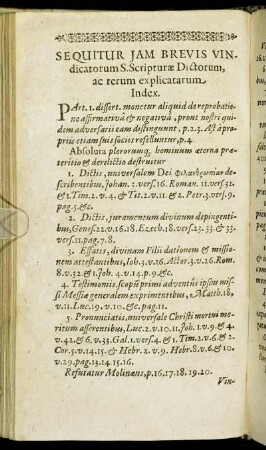 SEQUITUR JAM BREVIS VIN-
dicatorum S. Scripturæ Dictorum,
ac rerum explicatarum
Index.
PArt. 1. dissert. monetur aliquid de reprobatio-
ne affirmativâ & negativâ, prout nostri qui-
dem adversarii eam distinguunt, p. 2. 3. Ast à pro-
priis etiam suis sociis refelluntur, p. 4.
Absoluta plerorumq; hominum æterna præ-
teritio & derelictio destruitur
1. Dictis, universalem Dei Φιλανθρωπίαν de-
scribentibus, Johan. 3. vers. 16. Roman. 11. vers. 32.
& 1. Tim. 2. v. 4. & Tit. 2. v. 11. & 2. Petr. 3. vers. 9.
pag. 5. &c.
2. Dictis, juramentum divinum depingenti-
bus, Genes. 22. v. 16. 18. Ezech. 18. vers. 23. 33. & 33.
vers. 11. pag. 7. 8.
3. Effatis, divinam Filii dationem & missio-
nem attestantibus, Joh. 3. v. 16. Actor. 3. v. 26. Rom.
8. v. 32 & 1. Joh. 4. v. 14. p. 9. &c.
4. Testimoniis, scopũ primi adventũs ipsius mis-
si Messiæ generalem exprimentibus, Matth. 18,
v. 11. Luc. 19. v. 10. &c. pag. 11.
5. Pronunciatis, universale Christi mortui me-
ritum asserentibus, Luc. 2. v. 10. 11. Joh. 1. v. 9. & 4.
v. 42. & 6. v. 33. Gal. 1. vers. 4. & 1. Tim. 2. v. 6. & 2
Cor. 5. v. 14. 15. & Hebr. 2. v. 9. Hebr. 8. v. 6. & 10.
v. 29. pag. 13. 14. 15. 16.
Refutatur Molinæus, p. 16. 17. 18. 19. 20.
Vin-